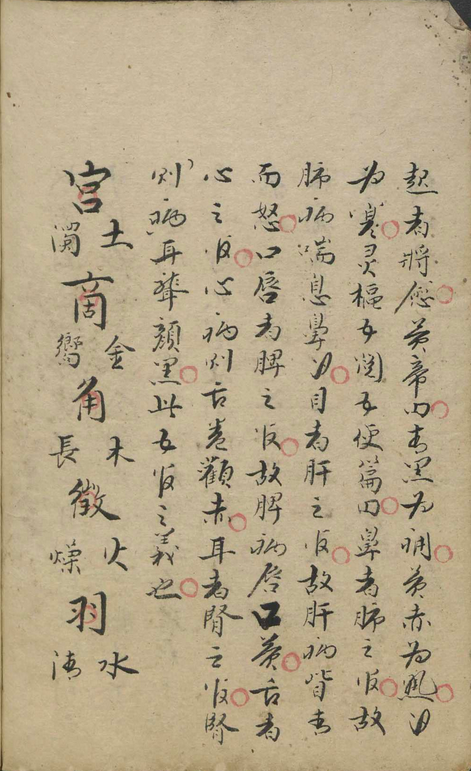 起者將愈黃帝曰青黑为痛黃赤为熱白
为寒灵樞五閲五使篇曰鼻者肺之官故
肺病喘息鼻目者肝之官故肝病眥青
而怒口唇者脾之官故脾病唇口黃舌者
心之官心病则舌卷顴赤耳者腎之官腎
则病耳聾顏黑此五官之義也
土 金 木 火 水
宮 商 角 徵 羽
濁 嚮 長 燥 清